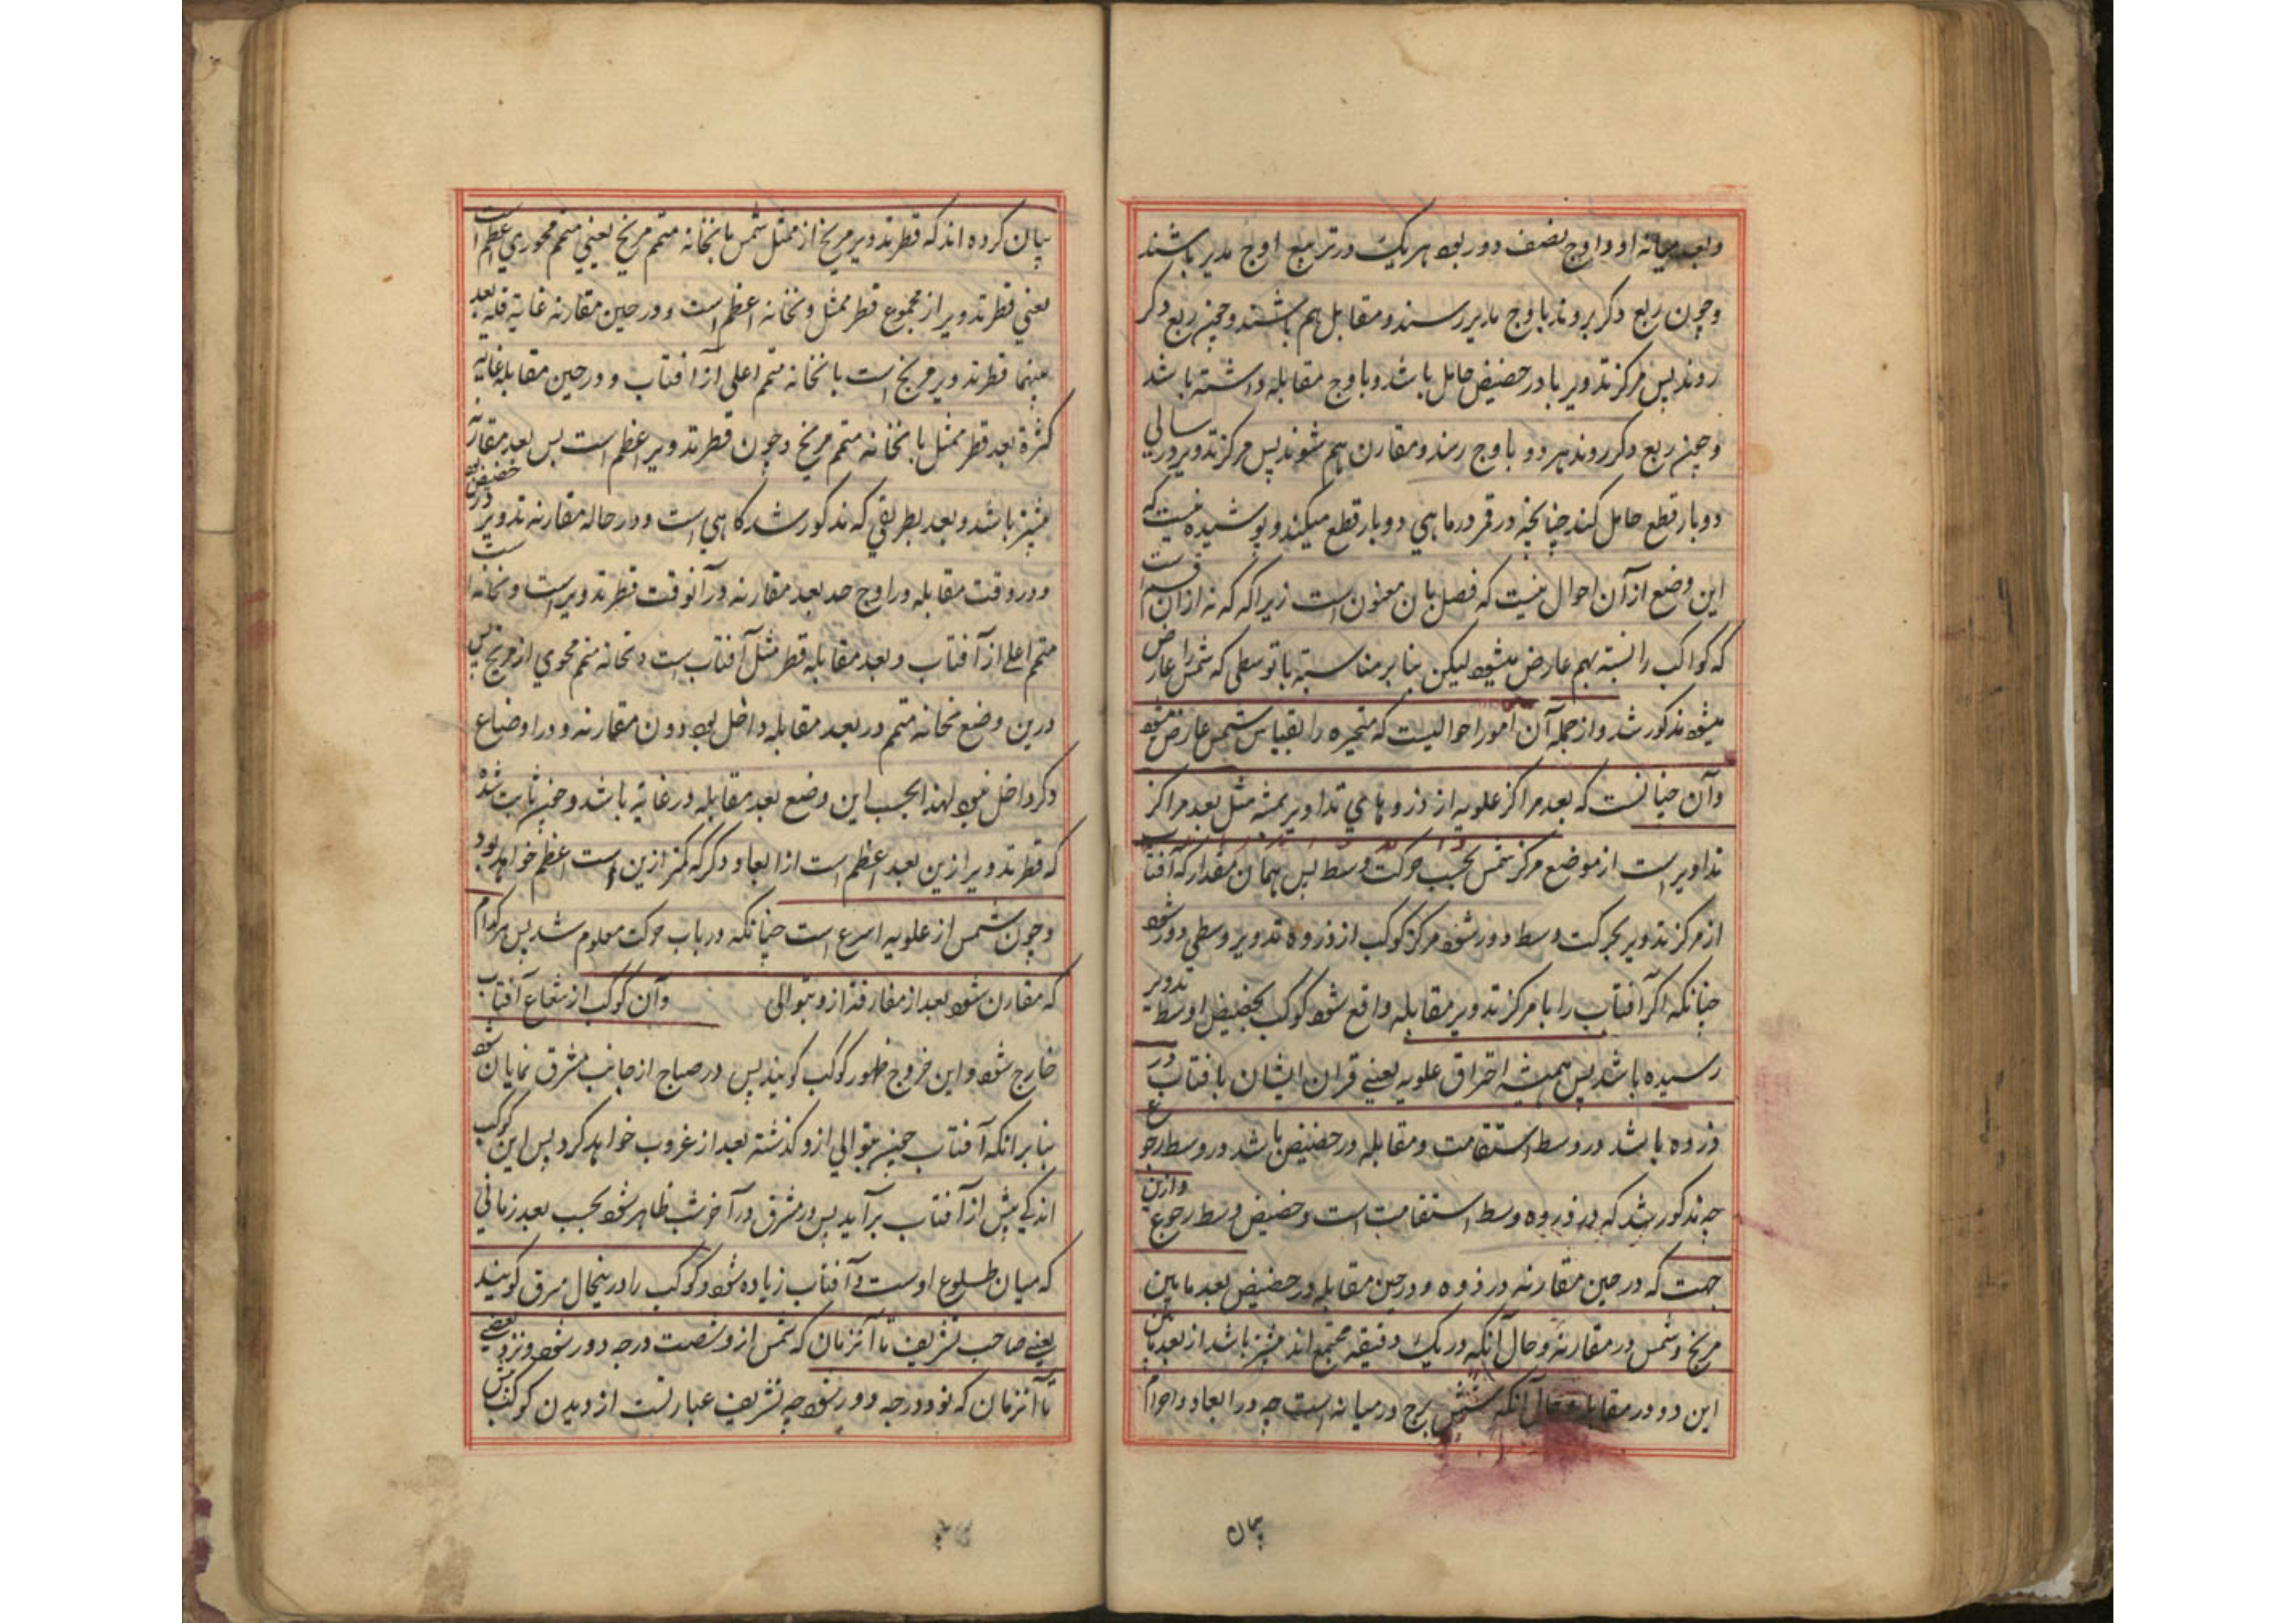 وبعد میانه او و اوج نصف دور بود هر یک در تربیع اوج مدیر باشند
و چون ربع دکر بروند با وج مدیر رسند و مقابل هم باشند و چون ربع دکر
روند پس مرکز تدویر با در حضیض حامل باشد و باوج مقابله داشته باشد
و چون ربع دکر روند هر دو باوج رسند و مقارن هم شوند پس مرکز تدویر در سالی
دوبار قطع حامل کند چنانچه در قمر در ماهی دوبار قطع میکند و پوشیده نیست که
این وضع از آن احوال نیست که فصل بان معنون است زیرا که نه از آن قسم است
که کواکب را نسبة بهم عارض میشود لیکن بنا بر مناسبة با توسطی که شمس را عارض
میشود مذکور شد و از جمله آن امور احوالیست که متحیره را بقیاس شمس عارض میشود
وآن چنانست که بعد مراکز علویه از ذروهای تداویر همیشه مثل بعد مراکز
تداویر است از موضع مرکز شمس بحسب حرکت وسط پس همان مقدار که آفتاب
از مرکز تدویر بحرکت وسط دور شود مرکز کوکب از ذروه تدویر وسطی دور شود
چنانکه اکر آفتاب را با مرکز تدویر مقابله واقع شود کوکب بحضیض اوسط تدویر
رسیده باشد پس همیشه احتراق علویه یعنی قران ایشان با فتاب در
ذروه باشد در وسط استقامت و مقابله در حضیض باشد در وسط رجوع
چه مذکور شد که در ذروه وسط استقامت است و حضیض وسط رجوع وازین
جهت که در حین مقارنه در ذروه و در حین مقابله در حضیض بعد ما بین
مریخ و شمس در مقارنه و حال آنکه در یک دقیقه مجتمع اند بیشتر باشد از بعد ما بین
این دو در مقابله و حال آنکه شش برج در میانه است چه در ابعاد و اجرام
بیان
بیان کرده اند که قطر تدویر مریخ از ممثل شمس با ثخانه متمم مریخ یعنی متمم محوری اعظم است
یعنی قطر تدویر از مجموع قطر ممثل و ثخانه اعظم است و در حین مقارنه غایة قلة بعد
بینهما قطر تدویر مریخ است با ثخانه متمم اعلی از آفتاب و در حین مقابله غایة
کثرة بعد قطر ممثل با ثخانه متمم مریخ و چون قطر تدویر اعظم است پس بعد مقارنه
بیشتر باشد و بعد بطریقی که مذکور شد کاهی است و در حاله مقارنه تدویر در حضیض بود
و در وقت مقابله در اوج حد بعد مقارنه در آنوقت قطر تدویر است و ثخانه است
متمم اعلی از آفتاب و بعد مقابله قطر مثل آفتاب است و ثخانه متمم محوی از مریخ پس
درین وضع ثخانه متمم در بعد مقابله داخل بود دون مقارنه و در اوضاع
دکر داخل نبود لهذا بحسب این وضع بعد مقابله در غایة باشد و چون ثابت شده
که قطر تدویر ازین بعد اعظم است از ابعاد دکر که کمتر ازین است اعظم خواهد بود
و چون شمس از علویه اسرع است چنانکه در باب حرکت معلوم شد پس هر کدام
که مقارن شود بعد از مفارقة ازو بتوالی وآن کوکب از شعاع آفتاب
خارج شود و این خروج ظهور کوکب کویند پس در صباح از جانب مشرق نمایان شود
بنا بر انکه آفتاب چون بتوالی ازو کذشته بعد از غروب خواهد کرد پس این کوکب
اندکی پیش از آفتاب برآید پس در مشرق در آخر شب ظاهر شود بحسب بعد زمانی
که میان طلوع اوست و آفتاب زیاده شود و کوکب را درینحال مشرق کویند
یعنی صاحب تشریف تا آنزمان که شمس ازو شصت درجه دور شود و نزد بعضی
تا آنزمان که نود درجه دور شود چه تشریف عبارتست از دیدن کوکب پیش